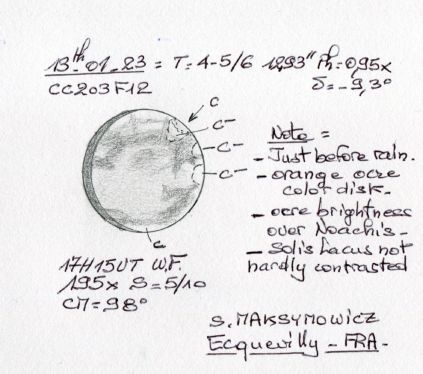 13th-01-23 = T=4-5/6 12,93" Ph=0,95x
CC203F12 δ=-9,3°
C
C-
C-
C-
C
Note =
- Just before rain.
- orange ocre
color disk.
- ocre brightness
over Noachis-
- Solis Lacus not
hardly contrasted
17H15UT W.F.
195x S=5/10
CM=98°
S. MAKSYMOWICZ
Ecquevilly - FRA-